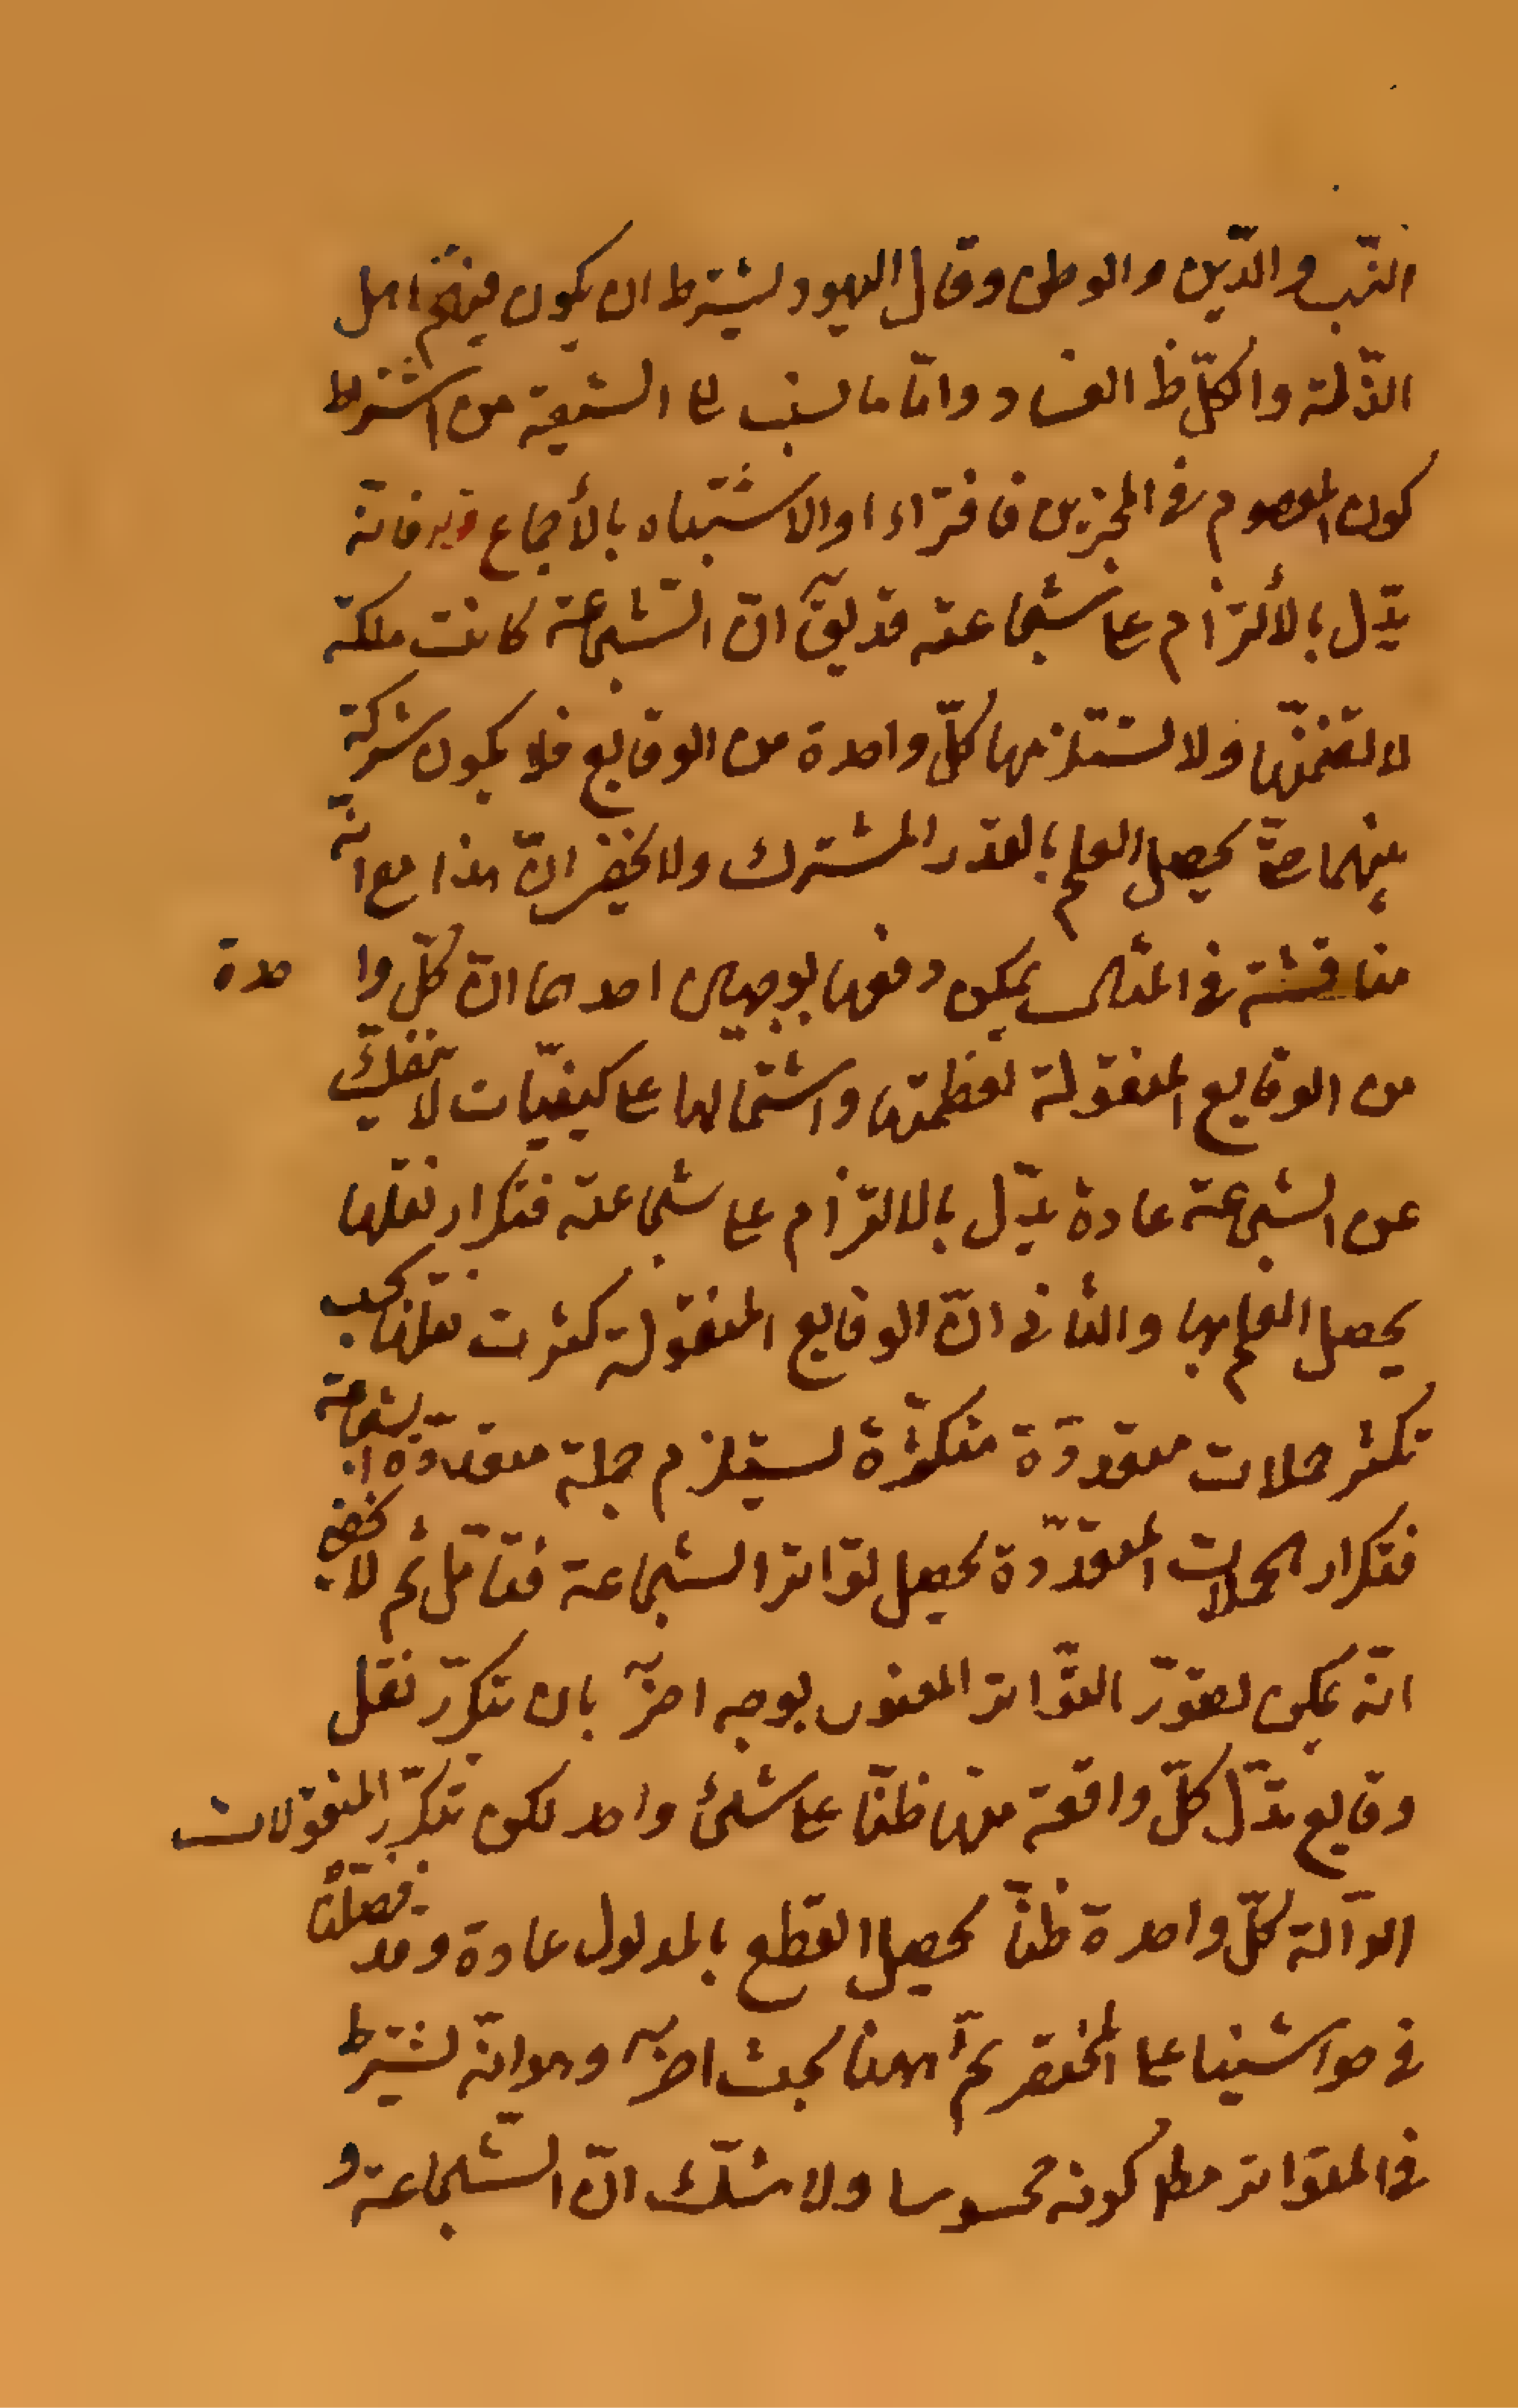 النسب والدّين والوطن وقال اليهود يشترط ان يكون فيهم اهل
الذّلة والكلّ ظ الفساد وامّا ما نسب الى الشيعة من اشتراط
كون المعصوم في المخبرين فافتراء او الاشتباه بالأجماع قوله فانّه
يدّل بالألتزام على شجاعته قد يقٓ انّ الشّجاعة كانت ملكة
لا تتضمّنها ولا تستلزمها كلّ واحدة من الوقايع فلا يكون شركة
بينهما حتّى يحصل العلم بالقدر المشترك ولا يخفى انّ هذا مع انّه
مناقشة في المثال يمكن دفعها بوجهين احدهما انّ كلّ واحدة
من الوقايع المنقولة لعظمتها واشتمالها على كيفيّات لا تنفكّ
عن الشجاعة عادة يدّل بالالتزام على شجاعته فتكرار نقلها
يحصل العلم بها والثاني انّ الوقايع المنقولة كثرت نقلها بحسب
تكثر حملات متعدّدة متكثّرة يستلزم جملة متعدّدة الشجاعة
فتكرار الحملات المتعدّدة يحصل تواتر الشجاعة فتأمّل ثم لا يخفى
انّه يمكن تصوّر التّواتر المعنوى بوجه اخر بان يتكرّر نقل
وقايع تدّل كلّ واقعة منها ظنّا على شئ واحد لكن بتكرّر المنقولات
الدّالة كلّ واحدة ظنّا يحصل القطع بالمدلول عادة وقد فصّلناه
في حواشينا على المختصر ثم ههنا بحث اخر وهو انّه يشترط
في المتواتر مط كونه محسوسا ولا شكّ انّ الشّجاعة و